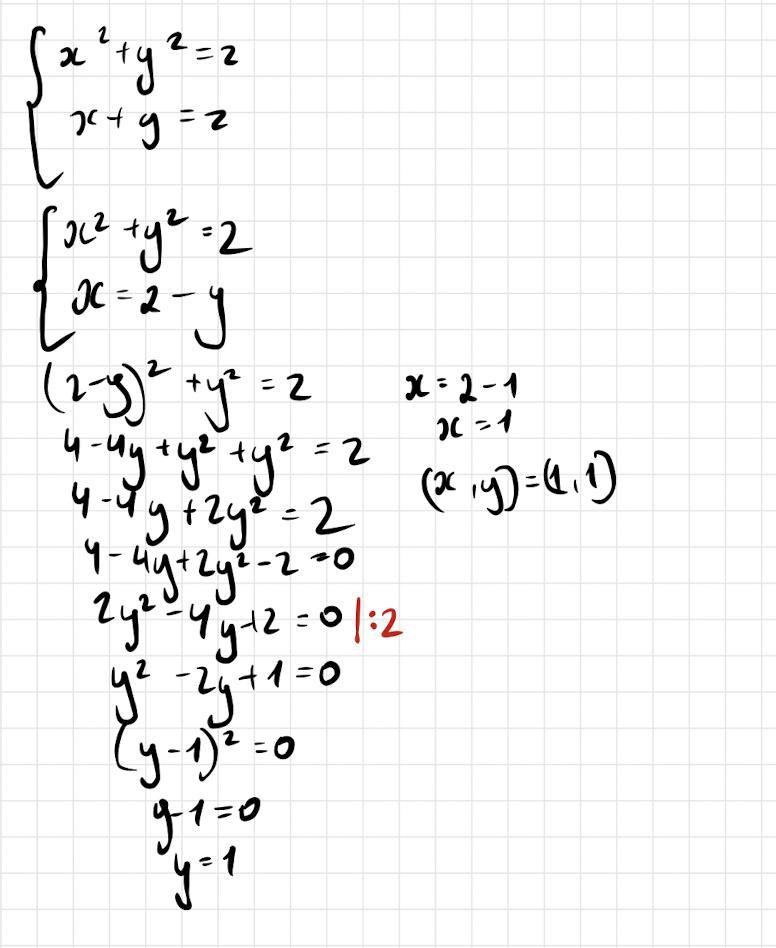 x² + y² = 2
x + y = 2
x² + y² = 2
x = 2 - y
(2-y)² + y² = 2
4 - 4y + y² + y² = 2
4 - 4y + 2y² = 2
4 - 4y + 2y² - 2 = 0
2y² - 4y + 2 = 0 |:2
y² - 2y + 1 = 0
(y - 1)² = 0
y - 1 = 0
y = 1
x = 2 - 1
x = 1
(x, y) = (1, 1)